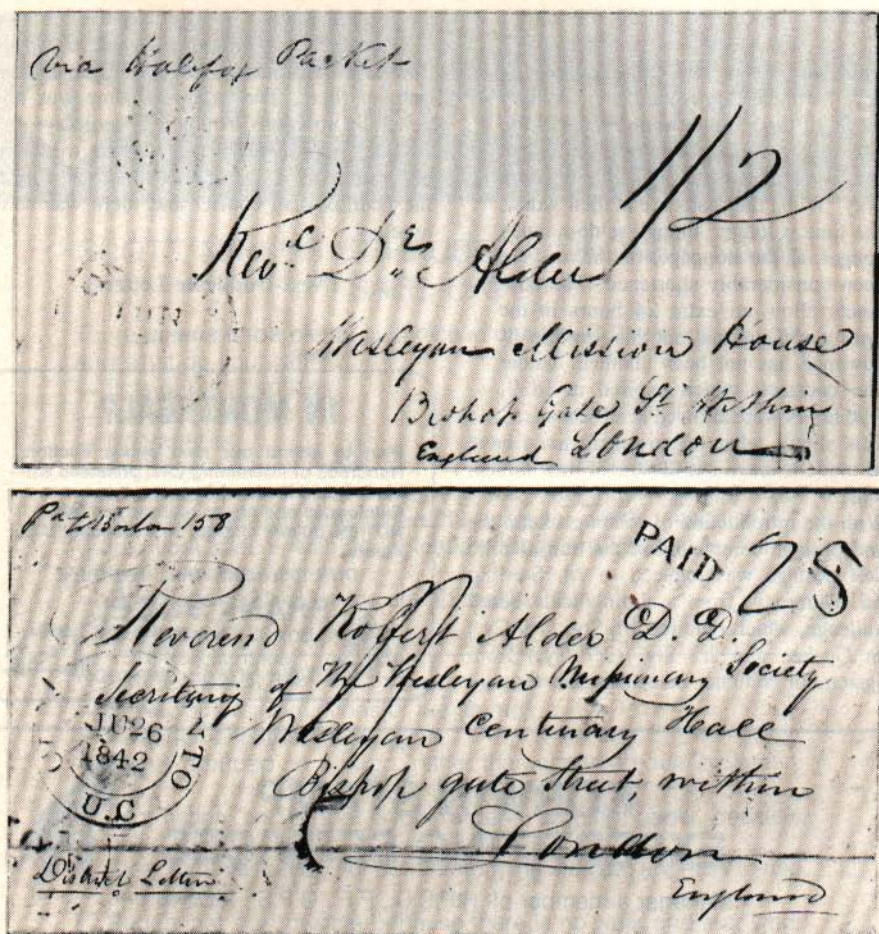 via Halifax Packet
1/2
Rev.d Dr. Alder
Wesleyan Mission House
Bishop Gate St. Within
England London
Pd to Boston 158
PAID 25
Reverend Robert Alder D. D.
Secretary of The Wesleyan Missionary Society
Wesleyan Centenary Hall
Bishop gate Street, within
London
England
JU 26
1842
U.C
District Letter